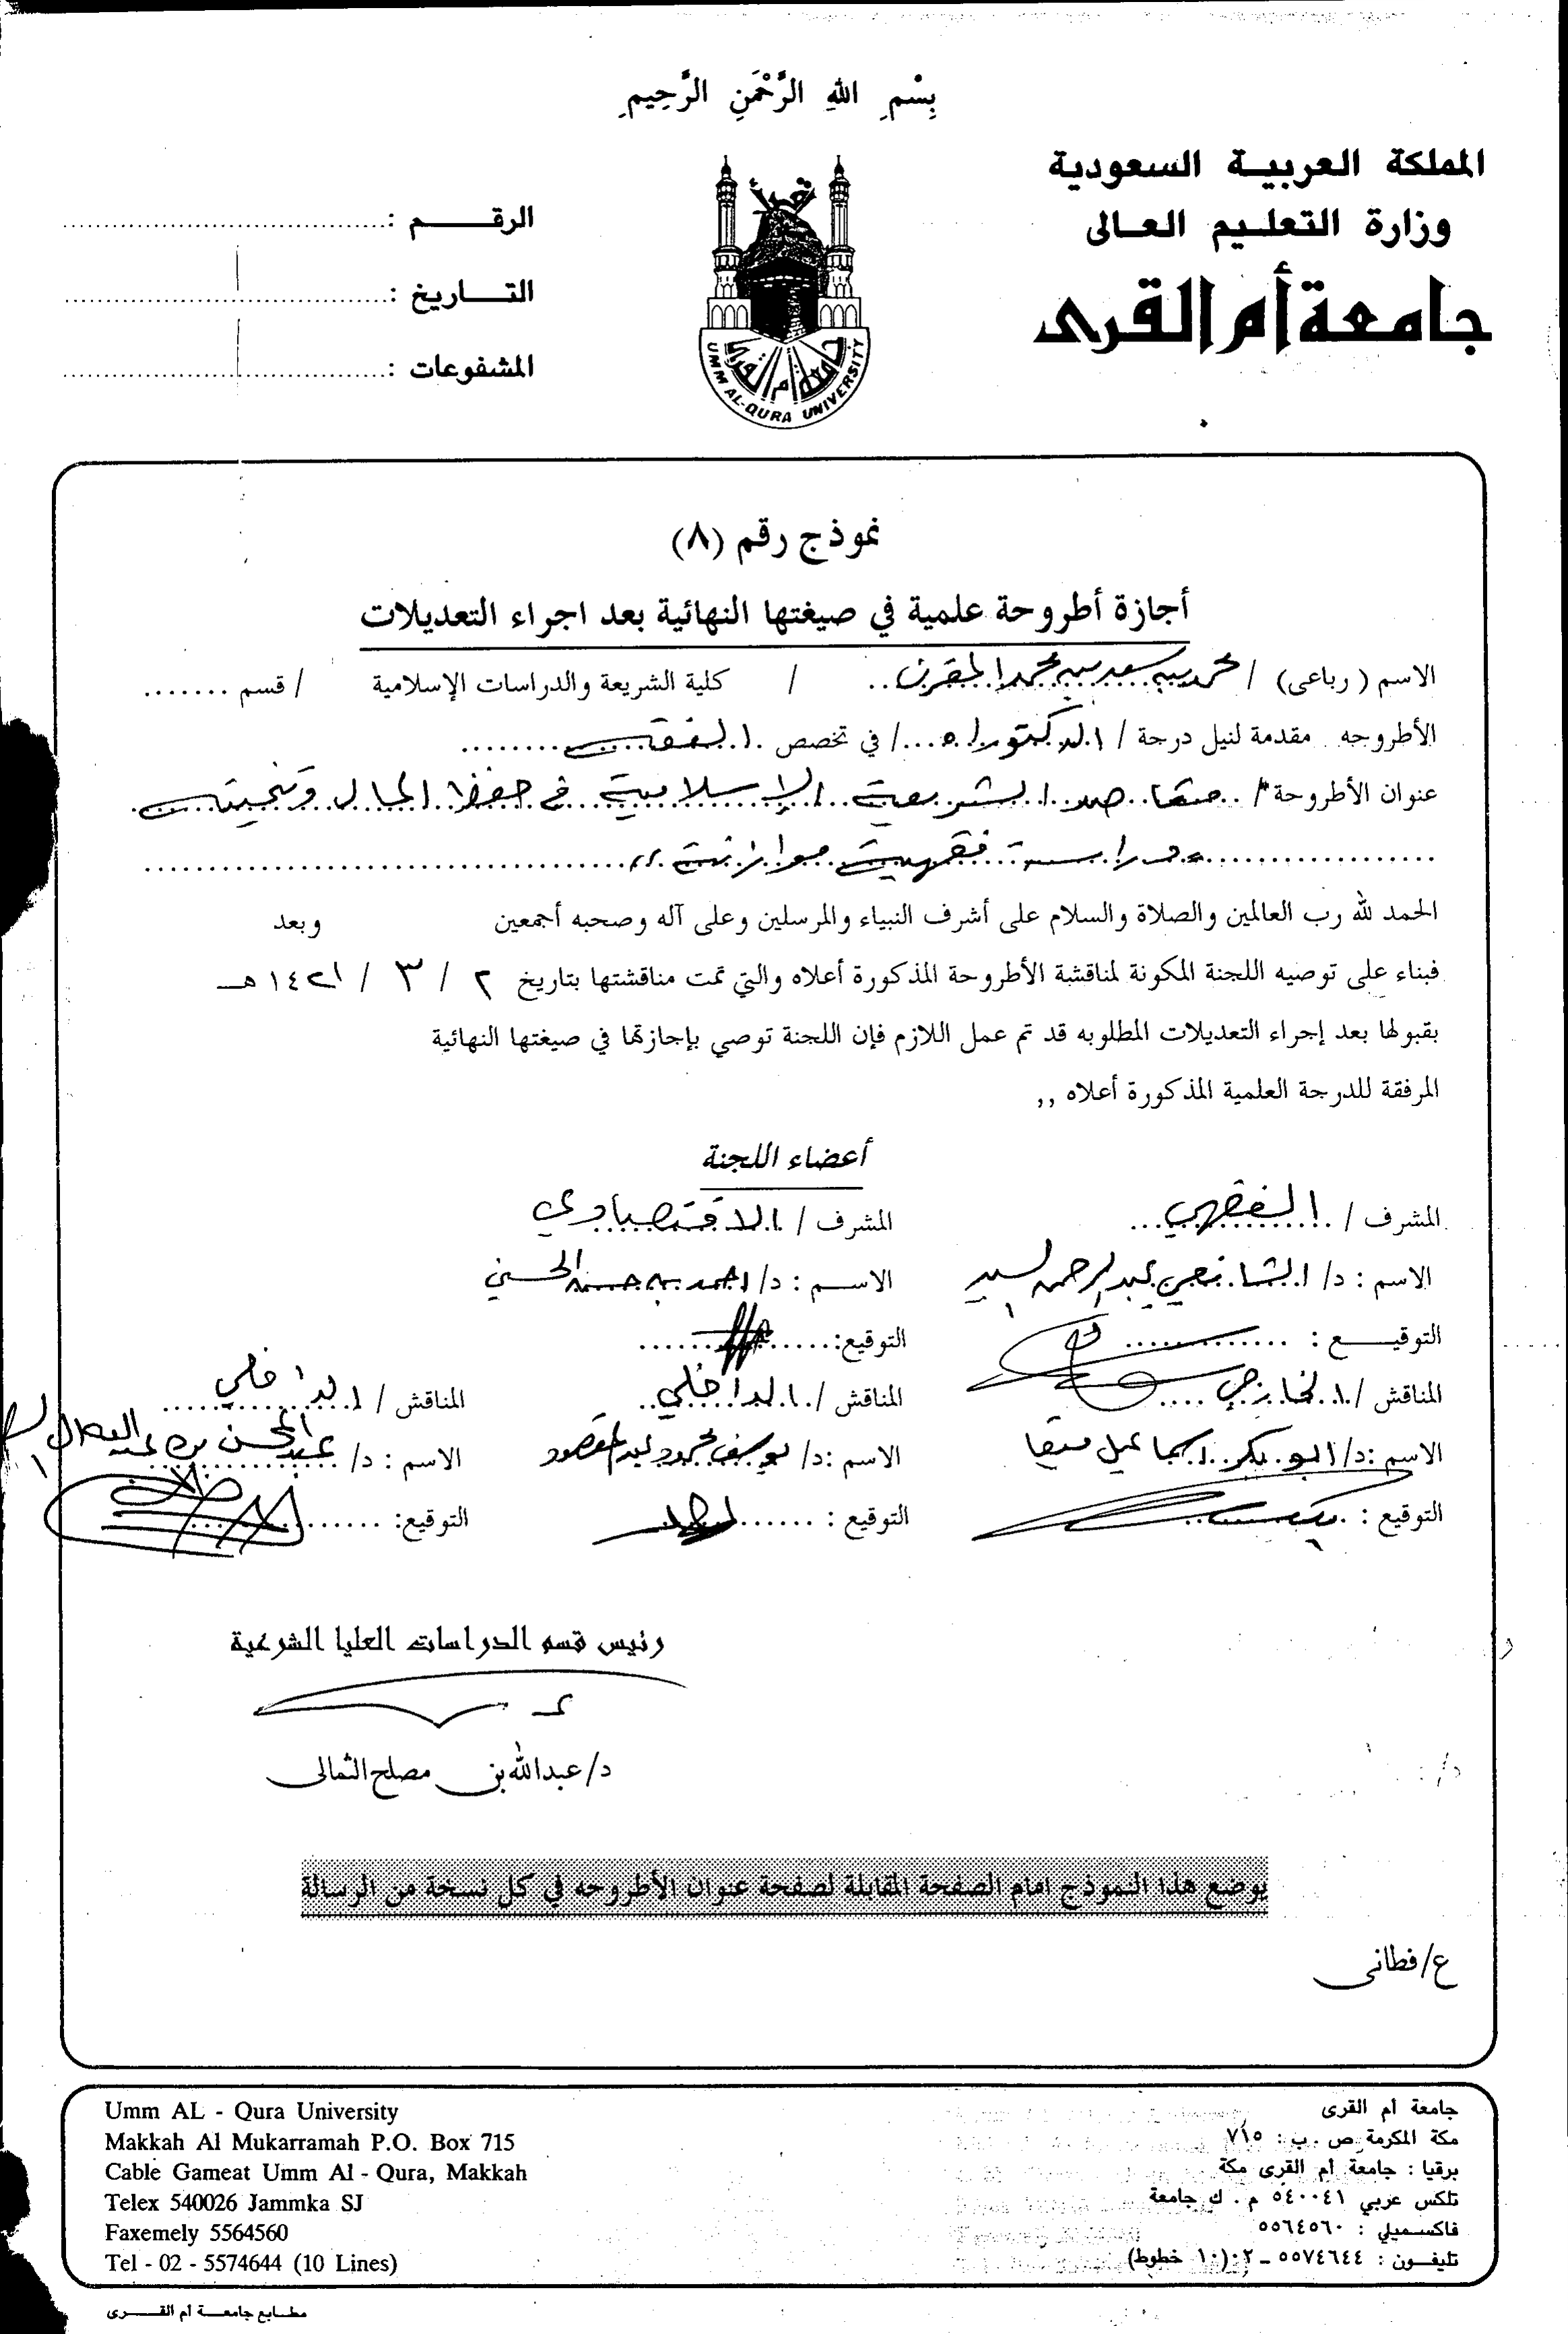 بِسْمِ اللهِ الرَّحْمَنِ الرَّحِيمِ
المملكة العربية السعودية
وزارة التعليم العالى
جامعة أم القرى
الرقم :
التاريخ :
المشفوعات :
جامعة أم القرى
UMM AL-QURA UNIVERSITY
نموذج رقم (٨)
أجازة أطروحة علمية في صيغتها النهائية بعد اجراء التعديلات
الاسم ( رباعى) / محمد بن سعد بن محمد المقرن .. / كلية الشريعة والدراسات الإسلامية / قسم .......
الأطروحه مقدمة لنيل درجة / الدكتوراه .... / في تخصص . الفقه .........
عنوان الأطروحة / .. مقاصد الشريعة الإسلامية في حفظ المال وتنميته .
.................. دراسة فقهية موازنة ,, ..............................
الحمد لله رب العالمين والصلاة والسلام على أشرف النبياء والمرسلين وعلى آله وصحبه أجمعين وبعد
فبناء على توصيه اللجنة المكونة لمناقشة الأطروحة المذكورة أعلاه والتي تمت مناقشتها بتاريخ ٢ / ٣ / ١٤٢١ هـ
بقبولها بعد إجراء التعديلات المطلوبه قد تم عمل اللازم فإن اللجنة توصي بإجازتها في صيغتها النهائية
المرفقة للدرجة العلمية المذكورة أعلاه ,,
أعضاء اللجنة
المشرف / . الفقهي ... المشرف / الاقتصادي
الاسم : د/ الشافعي عبد الرحمن السيد الاسم : د/ احمد بن حسن الحسني
التوقيع : ............. التوقيع: .............
المناقش / . الخارجي .... المناقش / . الداخلي .. المناقش / الداخلي
الاسم :د/ ابو بكر اسماعيل ميقا الاسم :د/ يوسف محمود عبد المقصود الاسم : د/ عبد المحسن بن عبد
التوقيع : التوقيع : ...... التوقيع: ......
رئيس قسم الدراسات العليا الشرعية
د/ عبدالله بن مصلح الثمالى
يوضع هذا النموذج امام الصفحة المقابلة لصفحة عنوان الأطروحه في كل نسخة من الرسالة
ع/فطانى
Umm AL - Qura University
Makkah Al Mukarramah P.O. Box 715
Cable Gameat Umm Al - Qura, Makkah
Telex 540026 Jammka SJ
Faxemely 5564560
Tel - 02 - 5574644 (10 Lines)
جامعة أم القرى
مكة المكرمة ص . ب : ٧١٥
برقيا : جامعة أم القرى مكة
تلكس عربي ٥٤٠٠٤١ م . ك جامعة
فاكسميلي : ٥٥٦٤٥٦٠
تليفون : ٥٥٧٤٦٤٤ - ٠٢ (١٠ خطوط)
مطابع جامعة أم القرى